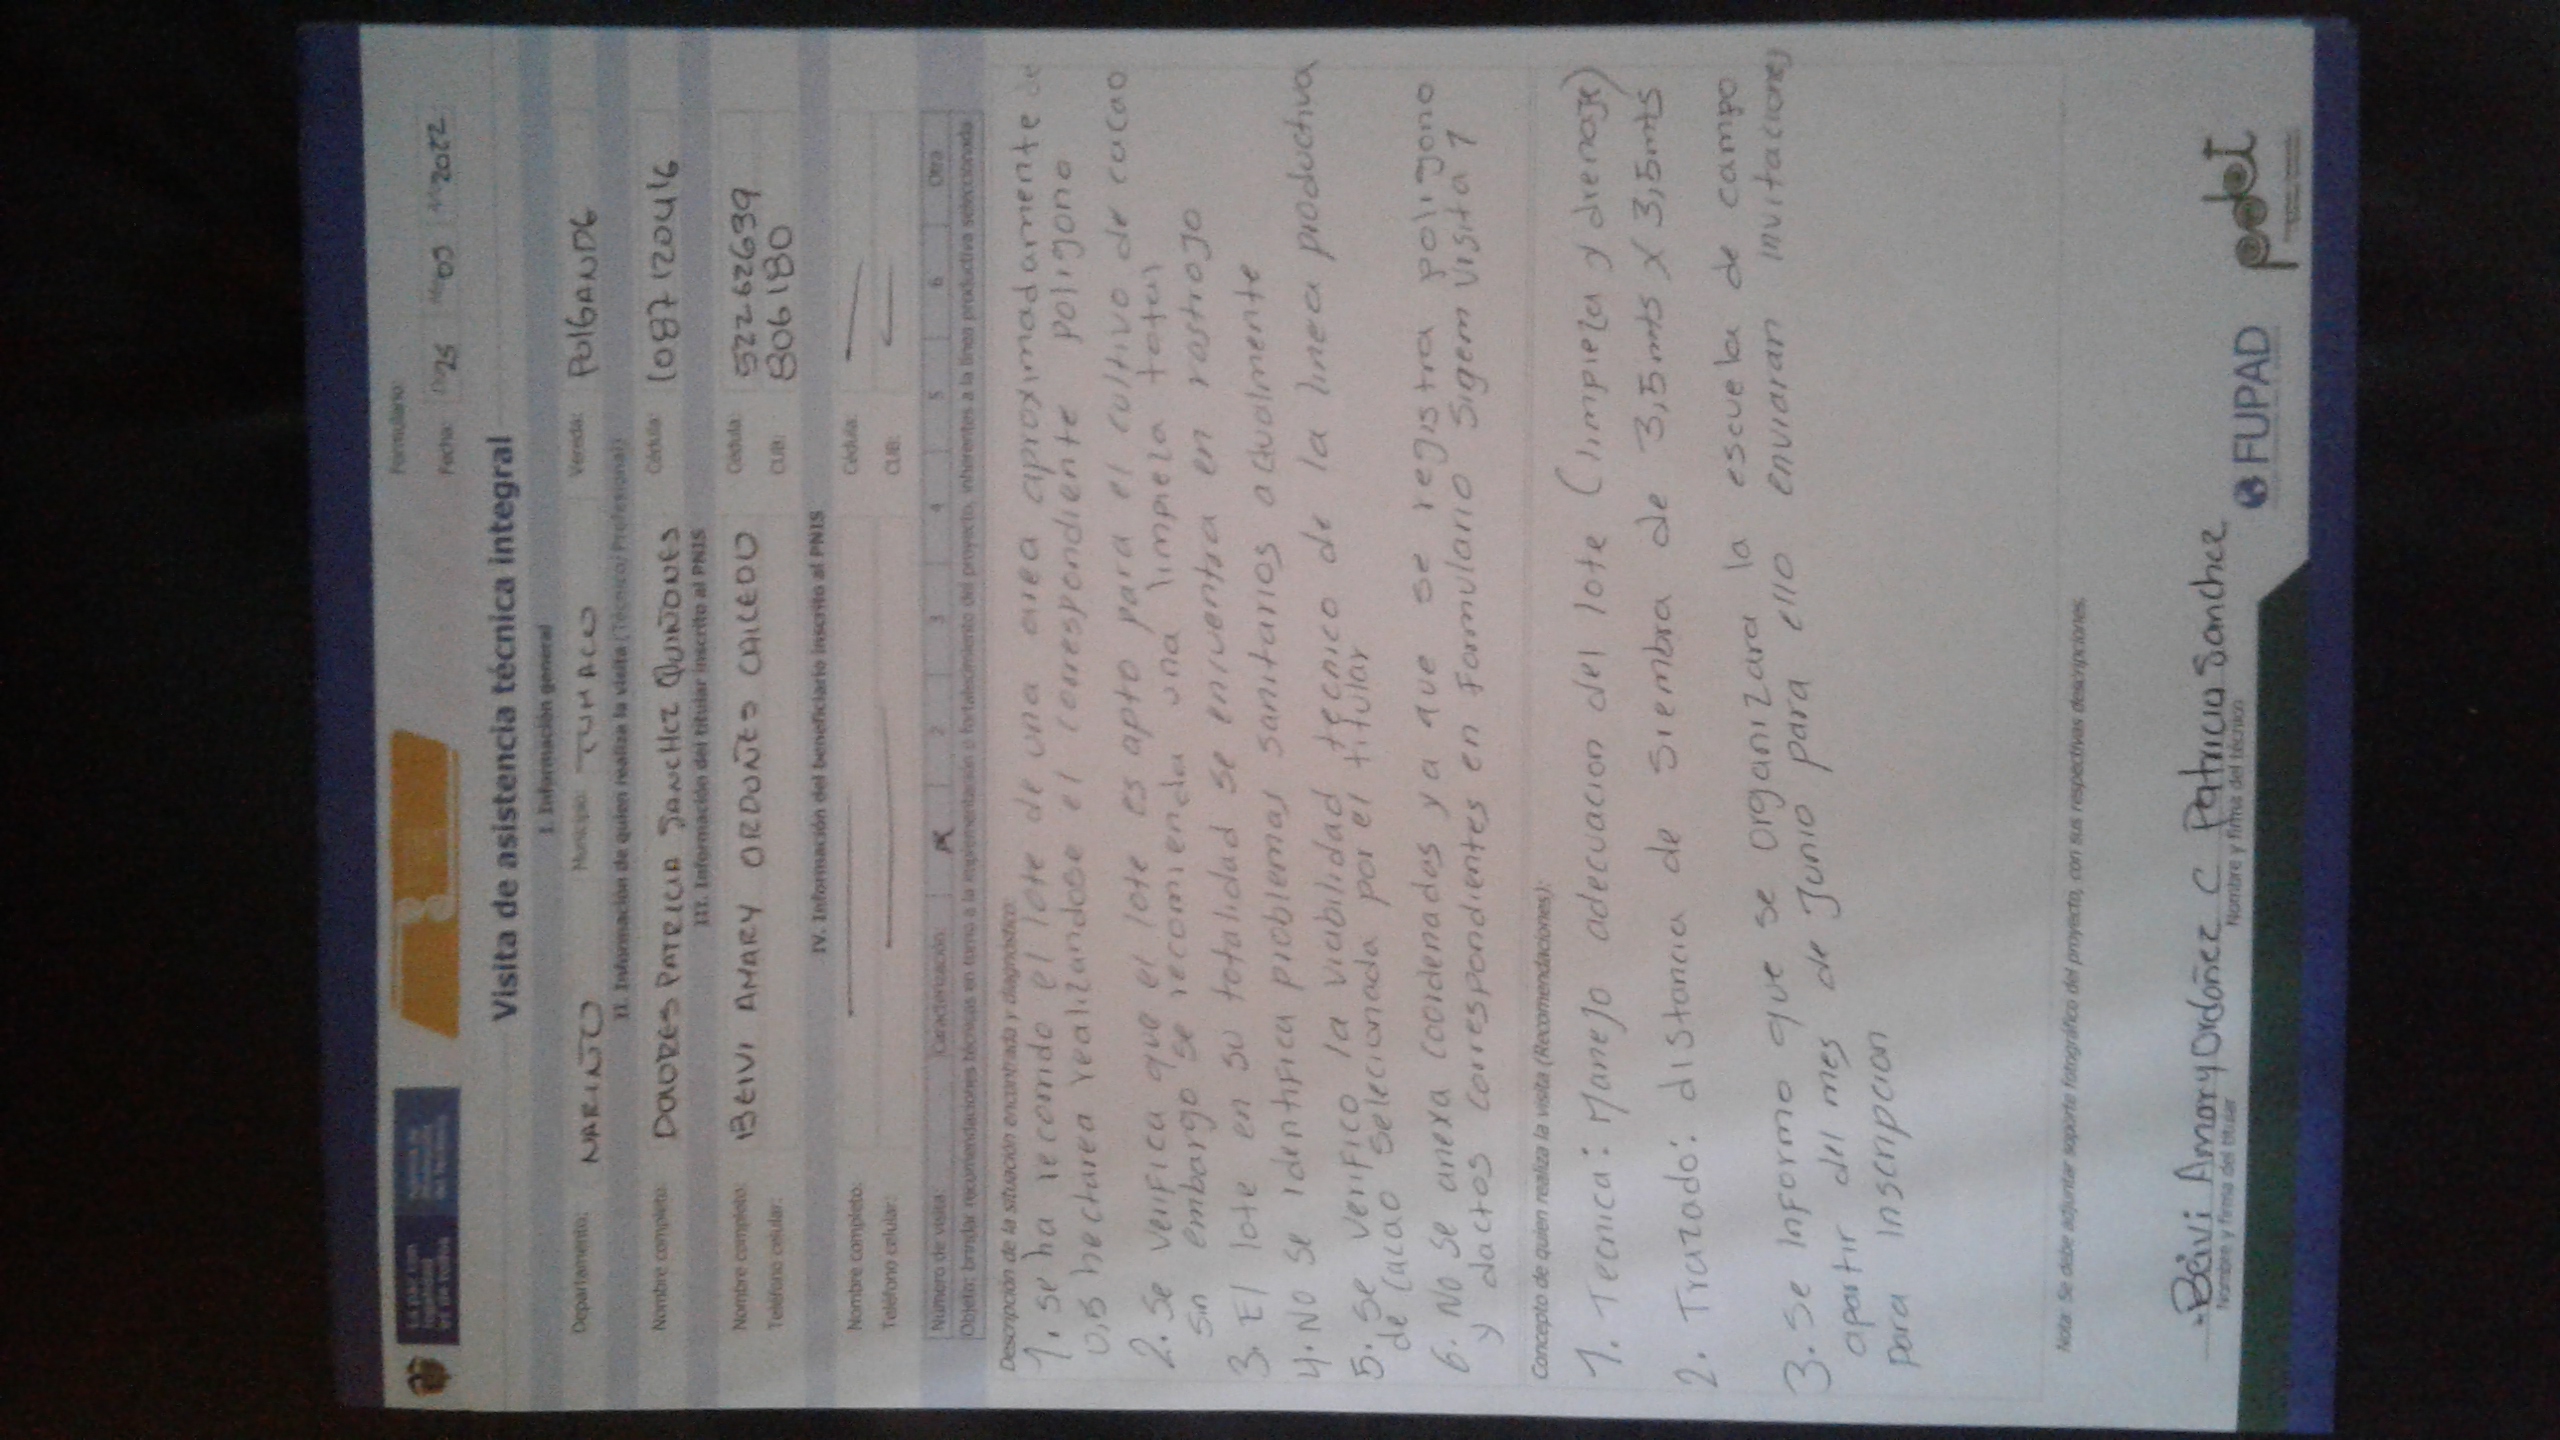 Formulario:
Fecha: Día 25 Mes 05 Año 2022
Visita de asistencia técnica integral
I. Información general
Departamento: NARIÑO Municipio: TUMACO Vereda: PULGANDE
II. Información de quien realiza la visita (Técnico/Profesional)
Nombre completo: DOLORES PATRICIA SANCHEZ QUIÑONES Cédula: 1087120416
III. Información del titular inscrito al PNIS
Nombre completo: BEIVI AMARY ORDOÑES CAICEDO Cédula: 52262639
Teléfono celular: CUB: 806180
IV. Información del beneficiario inscrito al PNIS
Nombre completo: Cédula:
Teléfono celular: CUB:
Número de visita: Caracterización: X 2 3 4 5 6 Otra
Objeto: brindar recomendaciones técnicas en torno a la implementación o fortalecimiento del proyecto, inherentes a la línea productiva seleccionada
Descripción de la situación encontrada y diagnóstico:
1. se ha recorrido el lote de una area aproximadamente de
0,5 hectarea realizandose el correspondiente poligono
2. Se verifica que el lote es apto para el cultivo de cacao
Sin embargo se recomienda una limpieza total
3. El lote en su totalidad se encuentra en rastrojo
4. No se identifica problemas sanitarios actualmente
5. Se verifico la viabilidad tecnico de la linea productiva
de cacao selecionada por el titular
6. No se anexa coordenadas ya que se registra poligono
y dactos correspondientes en Formulario Sigem visita 1
Concepto de quien realiza la visita (Recomendaciones):
1. Tecnica: Manejo adecuacion del lote (limpieza y drenaje)
2. Trazado: distancia de siembra de 3,5mts x 3,5mts
3. Se informo que se organizara la escuela de campo
apartir del mes de Junio para ello enviaran invitaciones
para inscripcion
Nota: Se debe adjuntar soporte fotográfico del proyecto, con sus respectivas descripciones.
Beivi Amary Ordoñez C Patricia Sanchez
Nombre y firma del titular Nombre y firma del técnico
FUPAD pdet